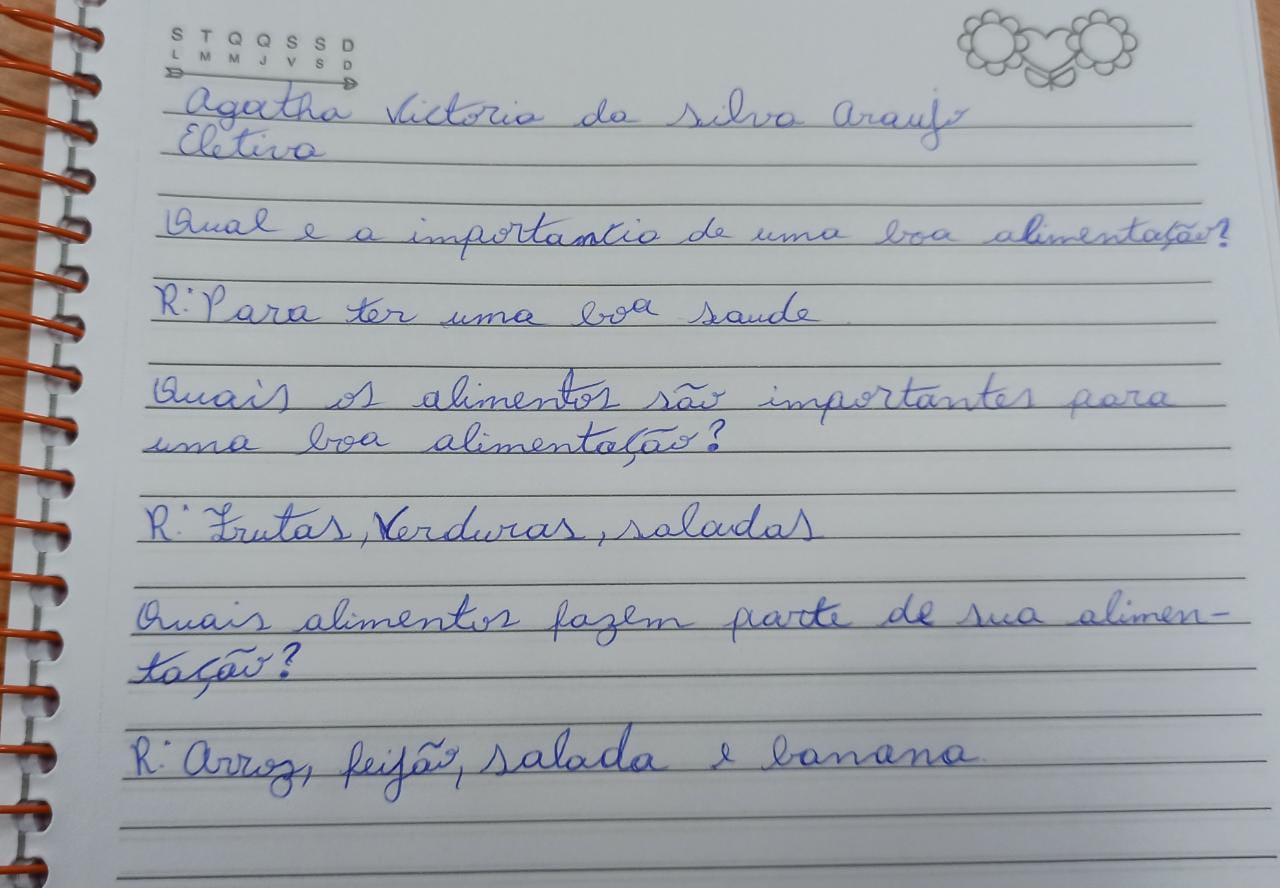 S T Q Q S S D
L M M J V S D
Agatha Victoria da Silva Araujo
Eletiva
Qual e a importancia de uma boa alimentação?
R: Para ter uma boa saude
Quais os alimentos são importantes para
uma boa alimentação?
R: Frutas, Verduras, saladas
Quais alimentos fazem parte de sua alimen-
tação?
R: Arroz, feijão, salada e banana